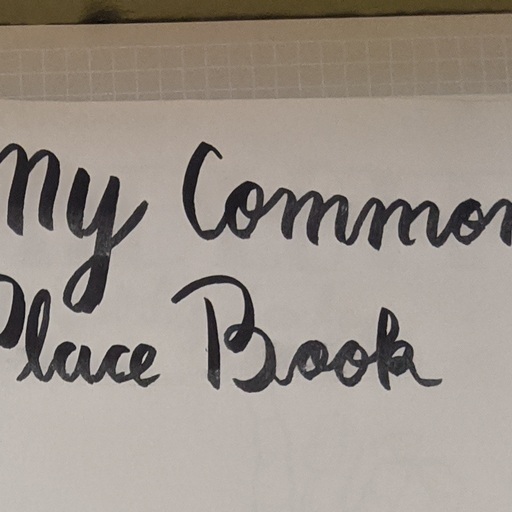 My Common
Place Book